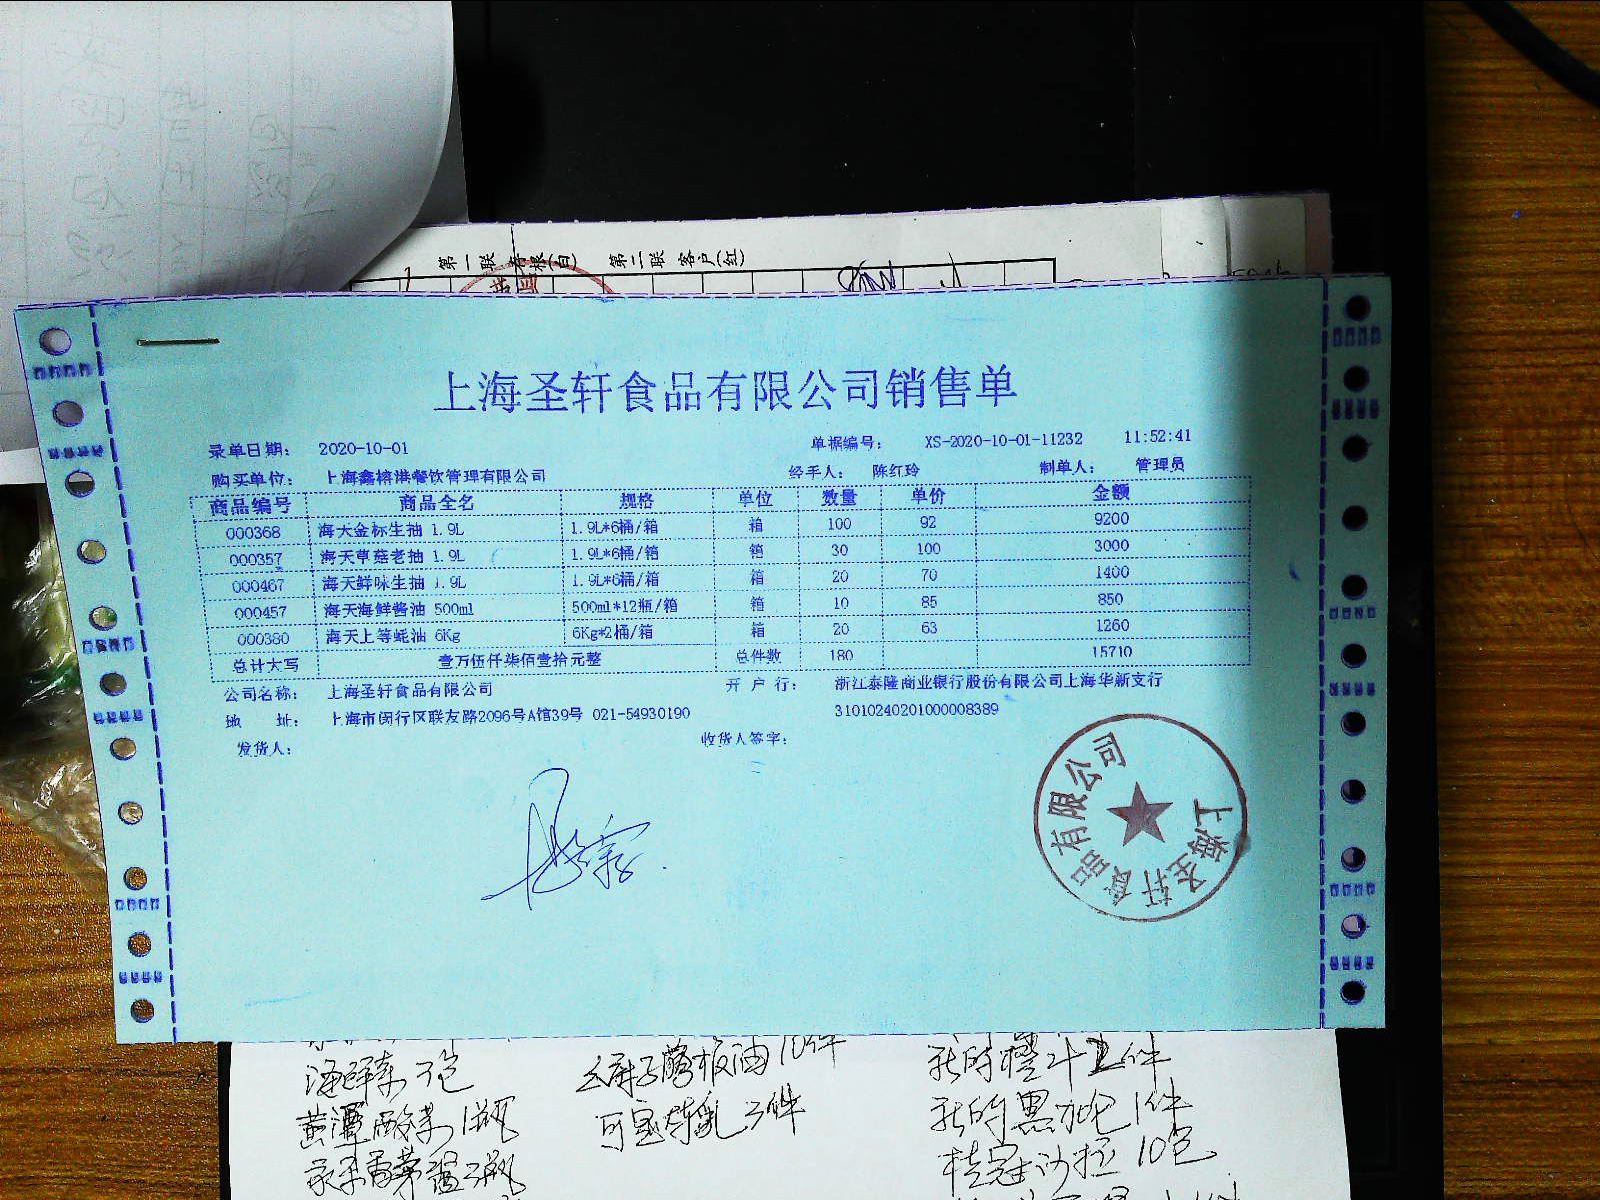 第一联 存根(白) 第二联 客户(红)
上海圣轩食品有限公司销售单
录单日期： 2020-10-01 单据编号： XS-2020-10-01-11232 11:52:41
购买单位： 上海鑫榕港餐饮管理有限公司 经手人： 陈红玲 制单人： 管理员
商品编号 商品全名 规格 单位 数量 单价 金额
000368 海天金标生抽 1.9L 1.9L*6桶/箱 箱 100 92 9200
000357 海天草菇老抽 1.9L 1.9L*6桶/箱 箱 30 100 3000
000467 海天鲜味生抽 1.9L 1.9L*6桶/箱 箱 20 70 1400
000457 海天海鲜酱油 500ml 500ml*12瓶/箱 箱 10 85 850
000380 海天上等蚝油 6Kg 6Kg*2桶/箱 箱 20 63 1260
总计大写 壹万伍仟柒佰壹拾元整 总件数 180 15710
公司名称： 上海圣轩食品有限公司 开 户 行： 浙江泰隆商业银行股份有限公司上海华新支行
地 址： 上海市闵行区联友路2096号A馆39号 021-54930190 31010240201000008389
发货人： 收货人签字：
上海圣轩食品有限公司
10件
可宝炼乳 3件
1件
桂冠沙拉 10包